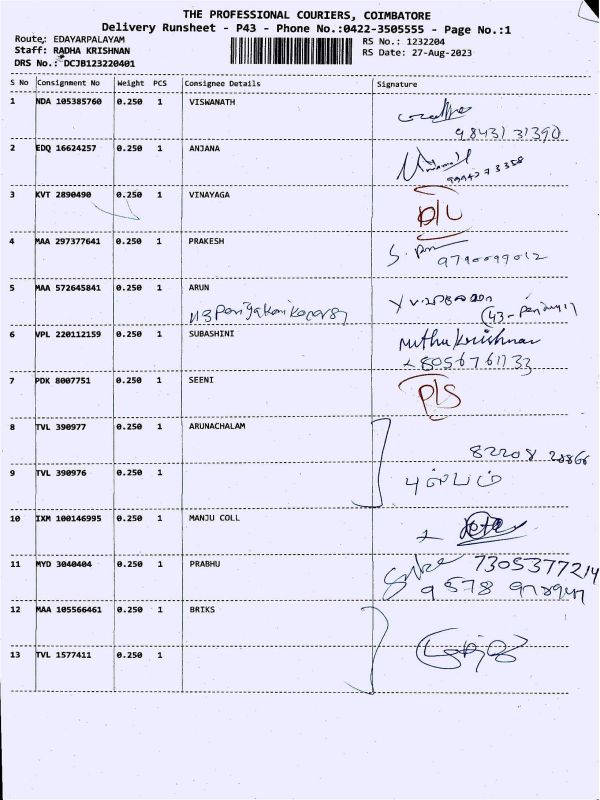 THE PROFESSIONAL COURIERS, COIMBATORE
Delivery Runsheet - P43 - Phone No.:0422-3505555 - Page No.:1
Route: EDAYARPALAYAM
RS No.: 1232204
Staff: RADHA KRISHNAN
RS Date: 27-Aug-2023
DRS No.: DCJB123220401
S No Consignment No Weight PCS Consignee Details Signature
1 NDA 105385760 0.250 1 VISWANATH
98431 31390
2 EDQ 16624257 0.250 1 ANJANA
3 KVT 2890490 0.250 1 VINAYAGA
D/L
4 MAA 297377641 0.250 1 PRAKESH
9790099012
5 MAA 572645841 0.250 1 ARUN
6 VPL 220112159 0.250 1 SUBASHINI
muthu krishnan
8056761733
7 PDK 8007751 0.250 1 SEENI
P/S
8 TVL 390977 0.250 1 ARUNACHALAM
82208 28866
9 TVL 390976 0.250 1
10 IXM 100146995 0.250 1 MANJU COLL
11 MYD 3040404 0.250 1 PRABHU
7305377214
12 MAA 105566461 0.250 1 BRIKS
13 TVL 1577411 0.250 1